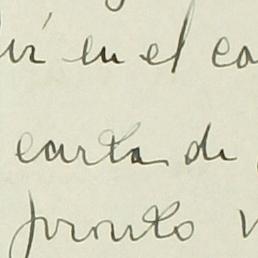 en el co
carta de
pronto v